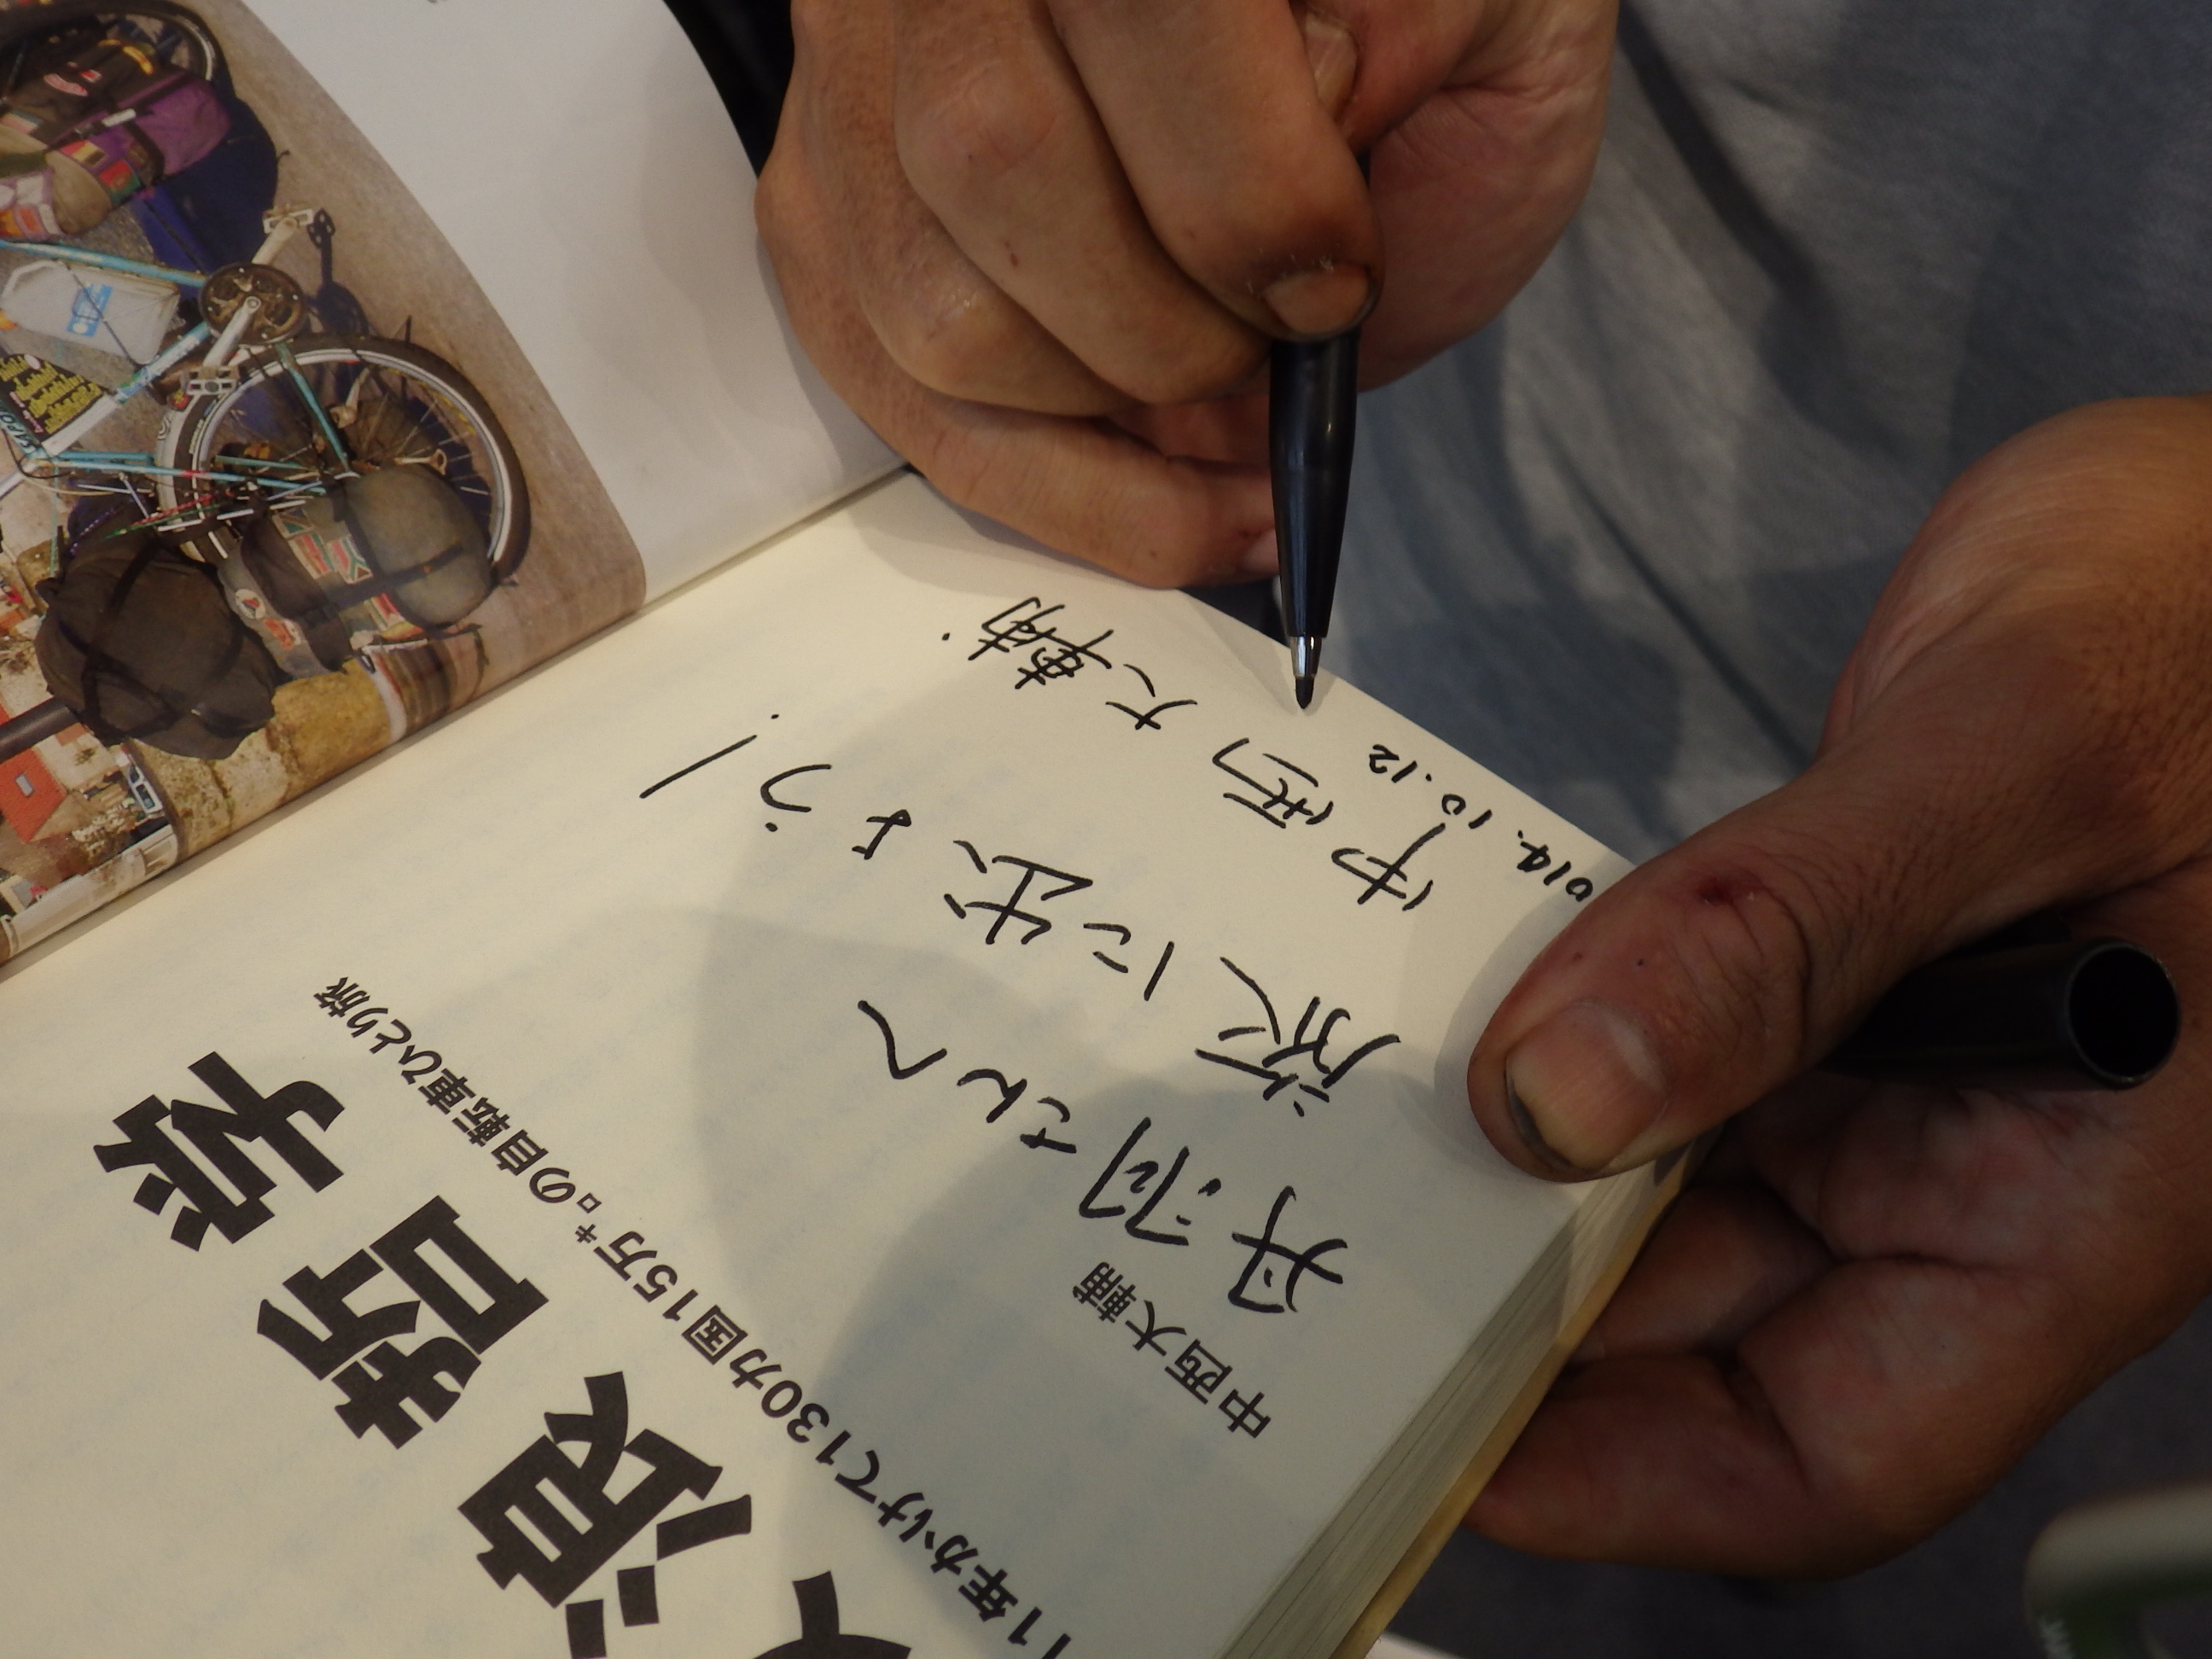 浪哲学
11年かけて130カ国15万キロの自転車ひとり旅
中西大輔
丹羽さんへ
旅に出よう!
中西大輔.
014.10.12